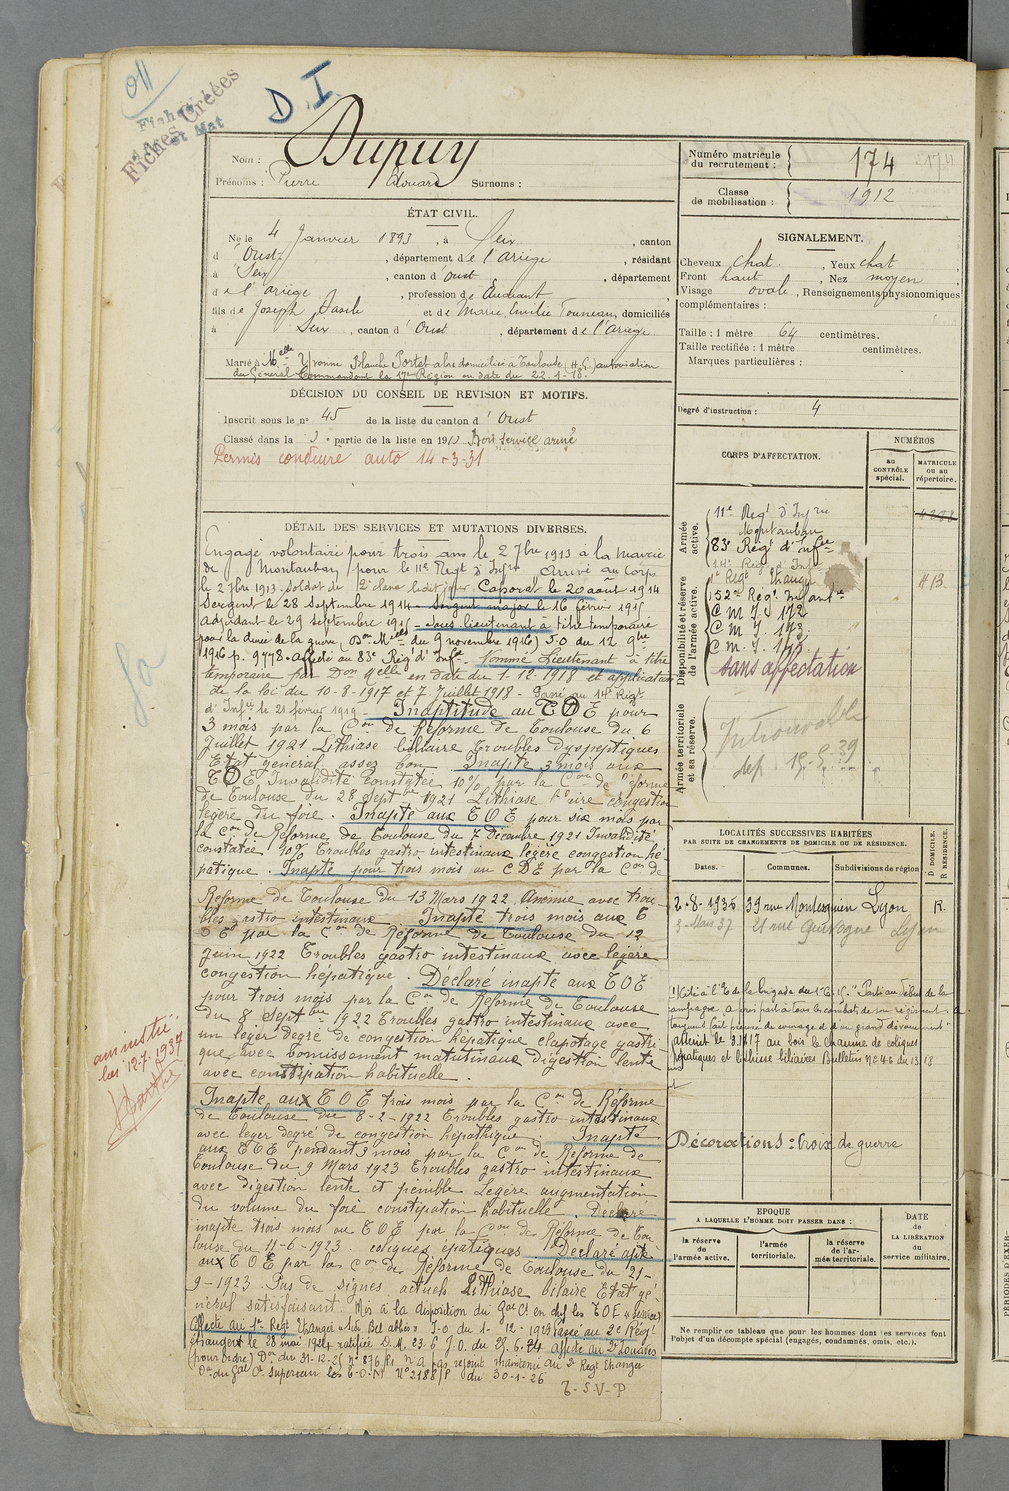 011
Fiches
et Mat
Fiches Créées
D. I.
Nom : Dupuy
Prénoms : Pierre Edouard Surnoms :
Numéro matricule du recrutement : 174
Classe de mobilisation : 1912
ÉTAT CIVIL.
Né le 4 Janvier 1893, à Seix, canton
d'Oust, département de l'Ariège, résidant
à Seix, canton d'Oust, département
de l'Ariège, profession de Etudiant
fils de Joseph Basile et de Marie Emilie Founeau, domiciliés
à Seix, canton d'Oust, département de l'Ariège
Marié à Melle Yvonne Blanche Portet domiciliée à Toulouse (H.G.) autorisation
du Général Commandant la 17e Région en date du 22.1.18.
SIGNALEMENT.
Cheveux chat., Yeux chat
Front haut, Nez moyen
Visage ovale, Renseignements physionomiques
complémentaires :
Taille : 1 mètre 64 centimètres.
Taille rectifiée : 1 mètre centimètres.
Marques particulières :
Degré d'instruction : 4
DÉCISION DU CONSEIL DE REVISION ET MOTIFS.
Inscrit sous le n° 45 de la liste du canton d'Oust
Classé dans la 3e partie de la liste en 1913 Bon service armé
Permis conduire auto 14-3-31
DÉTAIL DES SERVICES ET MUTATIONS DIVERSES.
Engagé volontaire pour trois ans le 2 7bre 1913 à la Mairie
de Montauban, pour le 11e Regt d'Infrie Arrivé au Corps
le 2 7bre 1913 soldat de 2e classe ledit jour, Caporal le 20 août 1914
Sergent le 28 Septembre 1914 - Sergent major le 16 février 1915
Adjudant le 29 septembre 1915 - Sous lieutenant à titre temporaire
pour la durée de la guerre (Don Mielle du 9 novembre 1916) J.O du 12 9bre
1916 p. 9778. Affecté au 83e Rég d'Infie. Nommé Lieutenant à titre
temporaire par Don Melle en date du 1-12-1918 et application
de la loi du 10-8-1917 et 7 Juillet 1918 - Passé au 14e Régt
d'Infie le 21 février 1919 - Inaptitude au TOE pour
3 mois par la Con de Réforme de Toulouse du 6
Juillet 1921 Lithiase biliaire Troubles dyspeptiques
Etat général assez bon. Inapte 3 mois aux
TOE Invalidité constatée 10% par la Con de réforme
de Toulouse du 28 Septbre 1921 Lithiase biliaire congestion
légère du foie. Inapte aux TOE pour six mois par
la Con de Réforme de Toulouse du 7 Décembre 1921 Invalidité
constatée 10% Troubles gastro intestinaux légère congestion hé
patique. Inapte pour trois mois au TOE par la Con de
Réforme de Toulouse du 13 Mars 1922 Anémie avec trou-
bles gastro intestinaux Inapte trois mois aux T
OE par la Con de Réforme de Toulouse du 12
Juin 1922 Troubles gastro intestinaux avec légère
congestion hépatique. Déclaré inapte aux TOE
pour trois mois par la Con de Réforme de Toulouse
du 8 Septbre 1922 Troubles gastro intestinaux avec
un léger degré de congestion hépatique clapotage gastri
que avec vomissement matutinaux digestion lente
avec constipation habituelle.
Inapte aux TOE trois mois par la Con de Réforme
de Toulouse du 8-2-1922 Troubles gastro intestinaux
avec léger degré de congestion hépathique. Inapte
aux TOE pendant 3 mois par la Con de Réforme de
Toulouse du 9 Mars 1923 Troubles gastro intestinaux
avec digestion lente et pénible Légère augmentation
du volume du foie constipation habituelle. Déclaré
inapte trois mois au TOE par la Con de Réforme de Tou
louse du 11-6-1923. coliques épatiques. Déclaré apte
aux TOE par la Con de Réforme de Toulouse du 21-
9-1923. Pas de signes actuels Lithiase bilaire Etat gé
néral satisfaisant. Mis à la disposition du Gal Ct en chef les TOE (service)
Affecté au 1er Régt Etranger à Sidi Bel abbès. J.O du 1-12-1923 passé au 2e Régt
étranger le 28 mai 1924 ratifiée D.M. 23.6 J.O. du 25.6.24 affecté au
(pour ordre) Don du 31-12-25 n° 876/P1 n'a pas rejoint maintenu au 2e Regt Etranger
Don du Gal Ct Supérieur des T-O-M N° 2188/P du 30-1-26
T-S-V-P
amnistié
loi 12.7.1937
CORPS D'AFFECTATION.
NUMÉROS
au CONTRÔLE spécial.
MATRICULE ou au répertoire.
Armée active.
11e Regt d'Infrie
Montauban
83e Régt d'Infie
14e Reg d'Infie
Disponibilité et réserve de l'armée active.
1er Regt Etranger
152e Regt Infantie
C M J. 172
C M J. 173
C M J. 173
sans affectation
Armée territoriale et sa réserve.
Introuvable
dep 15-5-39
LOCALITÉS SUCCESSIVES HABITÉES
PAR SUITE DE CHANGEMENTS DE DOMICILE OU DE RÉSIDENCE.
Dates. Communes. Subdivisions de région
D DOMICILE. R RÉSIDENCE.
2-8-1935 39 rue Montesquieu Lyon R.
3-Mars 37 21 rue Quivogne Lyon
Cité à l'O de la brigade du
campagne a pris part à tous les combats de son régiment
toujours fait preuve de courage et d'un grand dévouement
atteint le 3.1.17 au bois le Chaume de coliques
hépatiques et lithiase biliaires Bulletin N° 46 du 13 18
Décorations : Croix de guerre
EPOQUE
A LAQUELLE L'HOMME DOIT PASSER DANS :
la réserve de l'armée active.
l'armée territoriale.
la réserve de l'armée territoriale.
DATE de LA LIBÉRATION du service militaire.
Ne remplir ce tableau que pour les hommes dont les services font
l'objet d'un décompte spécial (engagés, condamnés, omis, etc.).